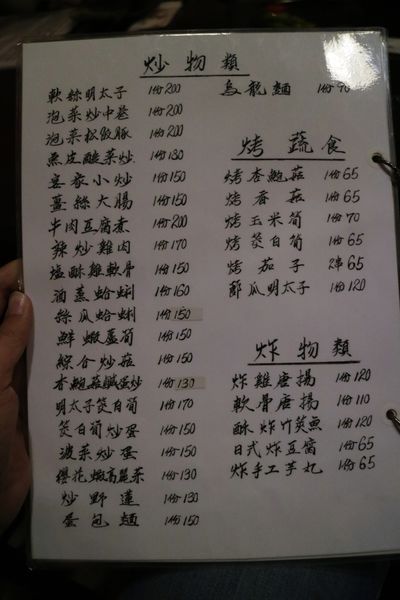 炒物類
軟絲明太子 1份200
泡菜炒中卷 1份200
泡菜松阪豚 1份200
魚皮酸菜炒 1份130
客家小炒 1份150
薑絲大腸 1份150
牛肉豆腐煮 1份200
辣炒雞肉 1份170
塩酥雞軟骨 1份150
酒蒸蛤蜊 1份160
絲瓜蛤蜊 1份150
鮮蝦蘆筍 1份150
綜合炒菇 1份150
杏鮑菇鹹蛋炒 1份130
明太子筊白筍 1份170
筊白筍炒蛋 1份150
菠菜炒蛋 1份150
櫻花蝦高麗菜 1份130
炒野蓮 1份130
蛋包麵 1份150
烏龍麵 1份90
烤蔬食
烤杏鮑菇 1份65
烤香菇 1份65
烤玉米筍 1份70
烤筊白筍 1份65
烤茄子 2串65
節瓜明太子 1份120
炸物類
炸雞唐揚 1份120
軟骨唐揚 1份110
酥炸竹筴魚 1份120
日式炸豆腐 1份65
炸手工芋丸 1份65